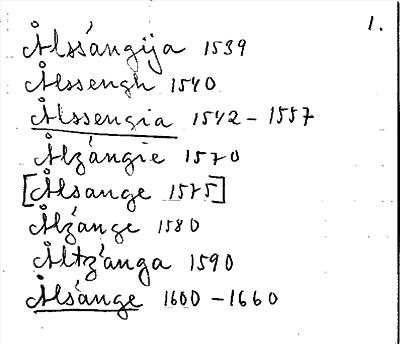 1.
Ålssángija 1539
Ålssengh 1540
Ålssengia 1542-1557
Ålzángie 1570
[Ålsange 1575]
Ålzánge 1580
Åltzánga 1590
Ålsánge 1600-1660